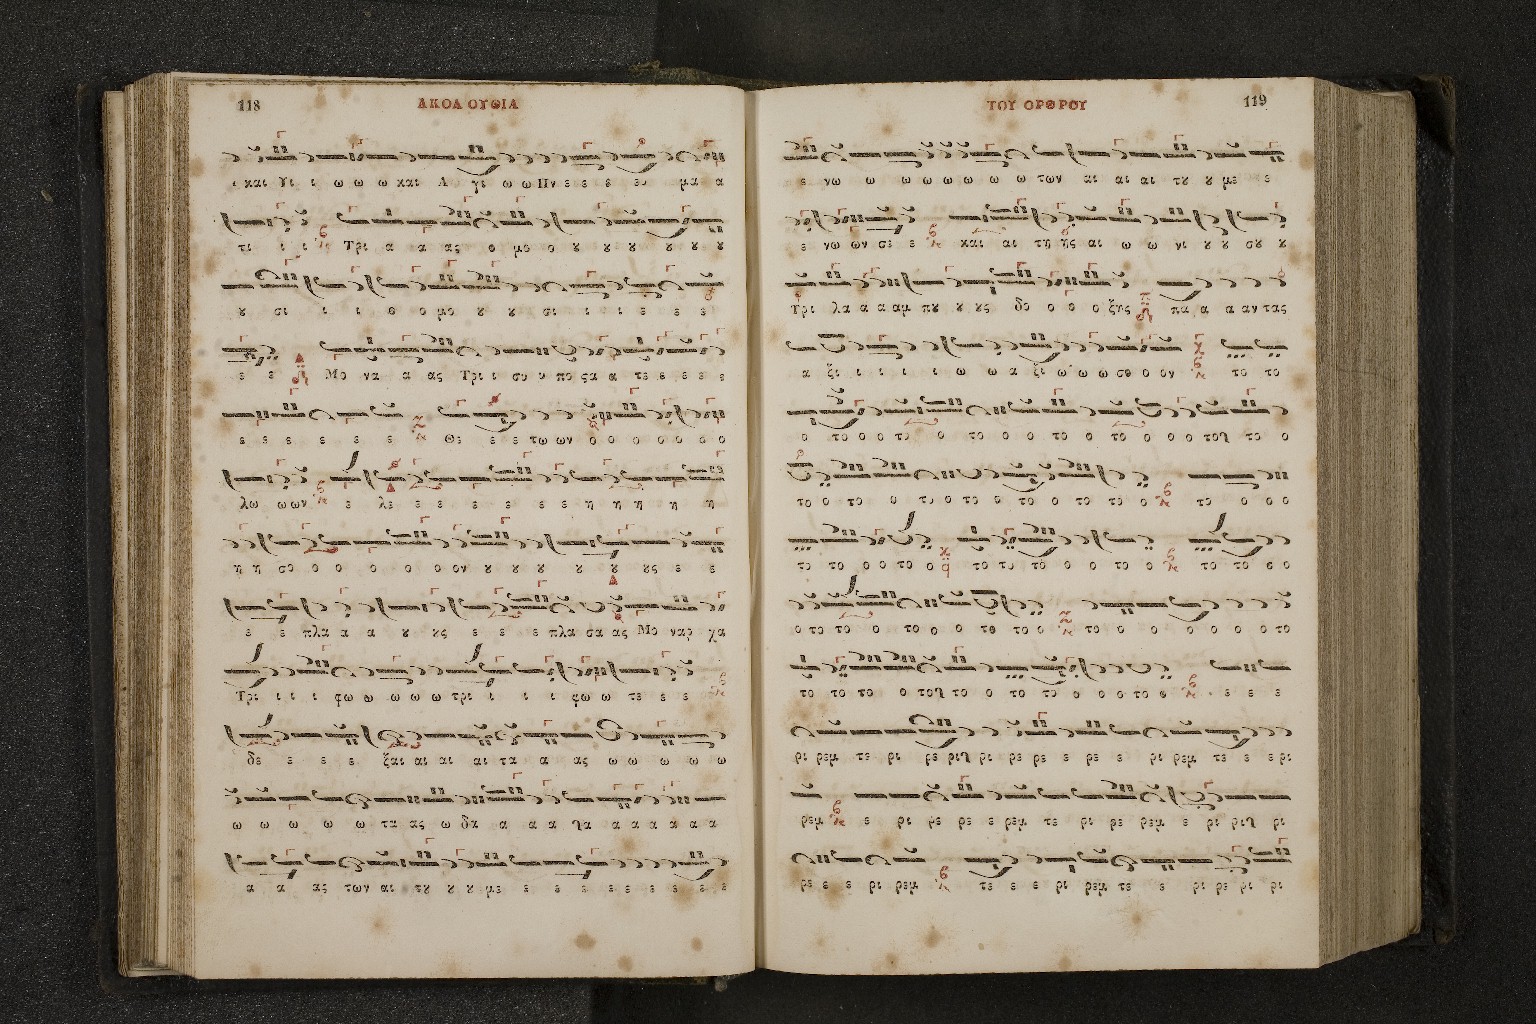 118
ΑΚΟΛΟΥΘΙΑ
και Υι ι ω ω ω και Α γι ω ω Πν ε ε ε ευ μα α
τι ι ι Τρι α α ας ο μο ο ȣ ȣ ȣ ȣ ȣ ȣ
ȣ σι ι ι ο ο μο ȣ ȣ σι ι ι ε ε ε
ε ε Μο να α ας Τρι ι συ υ πο ςα α τε ε ε ε ε
ε ε ε ε ε ε ε Θε ε ε τω ων ο ο ο ο ο ο ο
λω ω ων ε λε ε ε ε ε ε ε ε η η η η η
η η σο ο ο ο ο ο ο ον ȣ ȣ ȣ ȣ ȣ ȣς ε ε
ε ε πλα α α ȣ ȣς ε ε ε πλα σα ας Μο ναρ χα
Τρι ι ι ι φω ω ω ω ω τρι ι ι ι φω ω τε ε ε
δε ε ε ε ε ξαι αι αι αι τα α ας ω ω ω ω ω
ω ω ω ω ω τα ας ω δα α α α λα α α α α α α
α α ας των αι τȣ ȣ ȣ με ε ε ε ε ε ε ε ε ε
ΤΟΥ ΟΡΘΡΟΥ
119
ε νω ω ω ω ω ω ω ω των αι αι αι τȣ ȣ με ε
ε νω ων σε ε και αι τη ης αι ω ω νι ȣ ȣ σȣ ȣ
Τρι λα α α αμ πȣ ȣ ȣς δο ο ο ο ξης πα α α αν τας
α ξι ι ι ι ι ω ω α ξι ω ω ω σο ο ον το το
ο το ο ο το ο το ο ο ο το ο το ο ο ο τον το ο
το ο το ο το ο το ο το ο το ο το ο το ο ο ο
το το ο ο το ο το το το ο ο ο το ο το το ο ο
ο το το ο το ο ο το το ο το ο ο ο ο ο ο το
το το το ο τον το ο το το ο ο ο το ο ε ε ε
ρι ρεμ τε ρι ρε ριν ρι ρε ρε ε ρε ε ρι ρεμ τε ε ε ρι
ρεμ ε ρι ρε ρε ε ρεμ τε ρι ρε ρεμ ε ρι ριν ρι
ρε ε ε ρι ρεμ τε ε ε ρι ρεμ τε ε ρι ρε ρι ρι